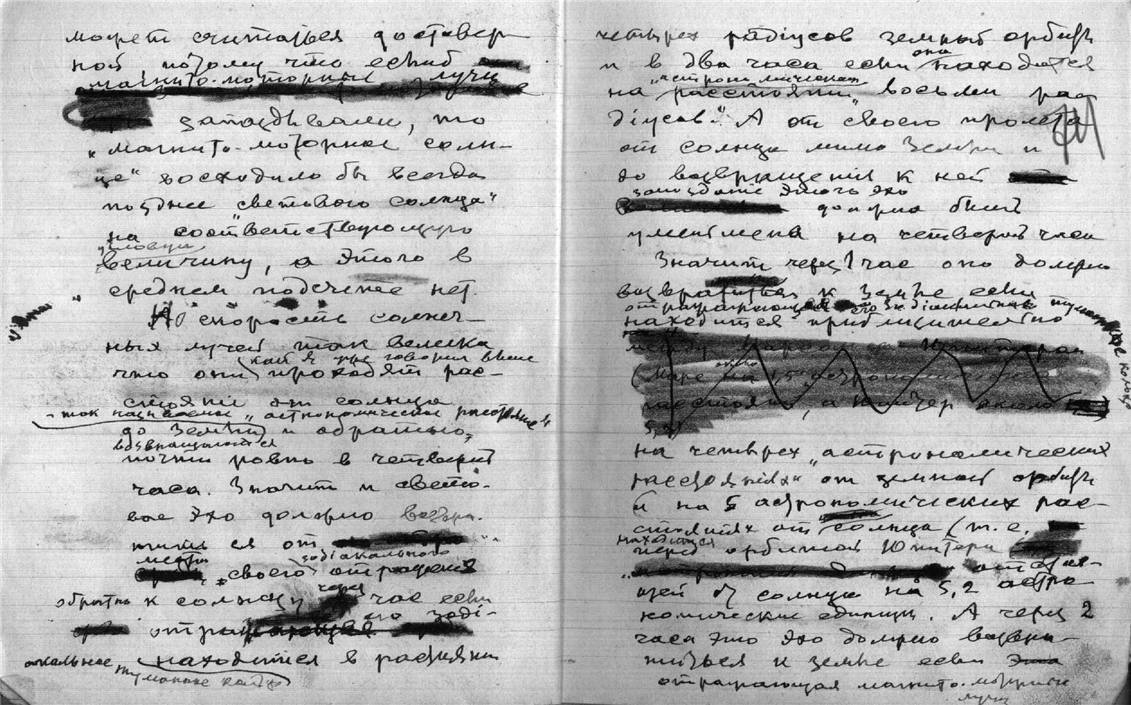 может считаться достовер
ной потому что еслиб
магнито-моторные лучи
запаздывали, то
„магнито-моторное солн-
це" восходило бы всегда
позднее „светового солнца"
на соответствующую
величину, а этого в
среднем подсчете нет.
Но скорость солнеч-
ных лучей так велика
как я уже говорил выше
что они проходят рас-
стояние от солнца
так называемое „астрономическое расстояние"
до Земли и обратно
возвращаются
почти ровно в четверть
часа. Значит и свето-
вое эхо должно возвра-
титься от
места
зодиакального
„своего отражения
обратно к солнцу через час если
его зоди-
акальное находится в расстоянии
туманное кольцо
четырех радіусов земной орбиты
и в два часа если она находится
„астрономических
на расстоянии" восьми ра
діусов". А от своего пролета
74
от солнца мимо Земли и
до возвращения к ней
запоздание этого эхо
должно быть
уменьшена на четверть часа
Значит через 1 час оно должно
возвратиться к Земле если
отражающее его зодіакальное туманное кольцо
находится приблизительно
на четырех „астрономических
расстояніях" от земной орбиты
и на 5 астрономических рас-
стояниях от солнца (т.е.
находится
перед орбитой Юпитера
от солнца на 5,2 астро-
номические единицы. А через 2
часа это эхо должно возвра-
титься к земле если
отражающая магнито-моторные
лучи